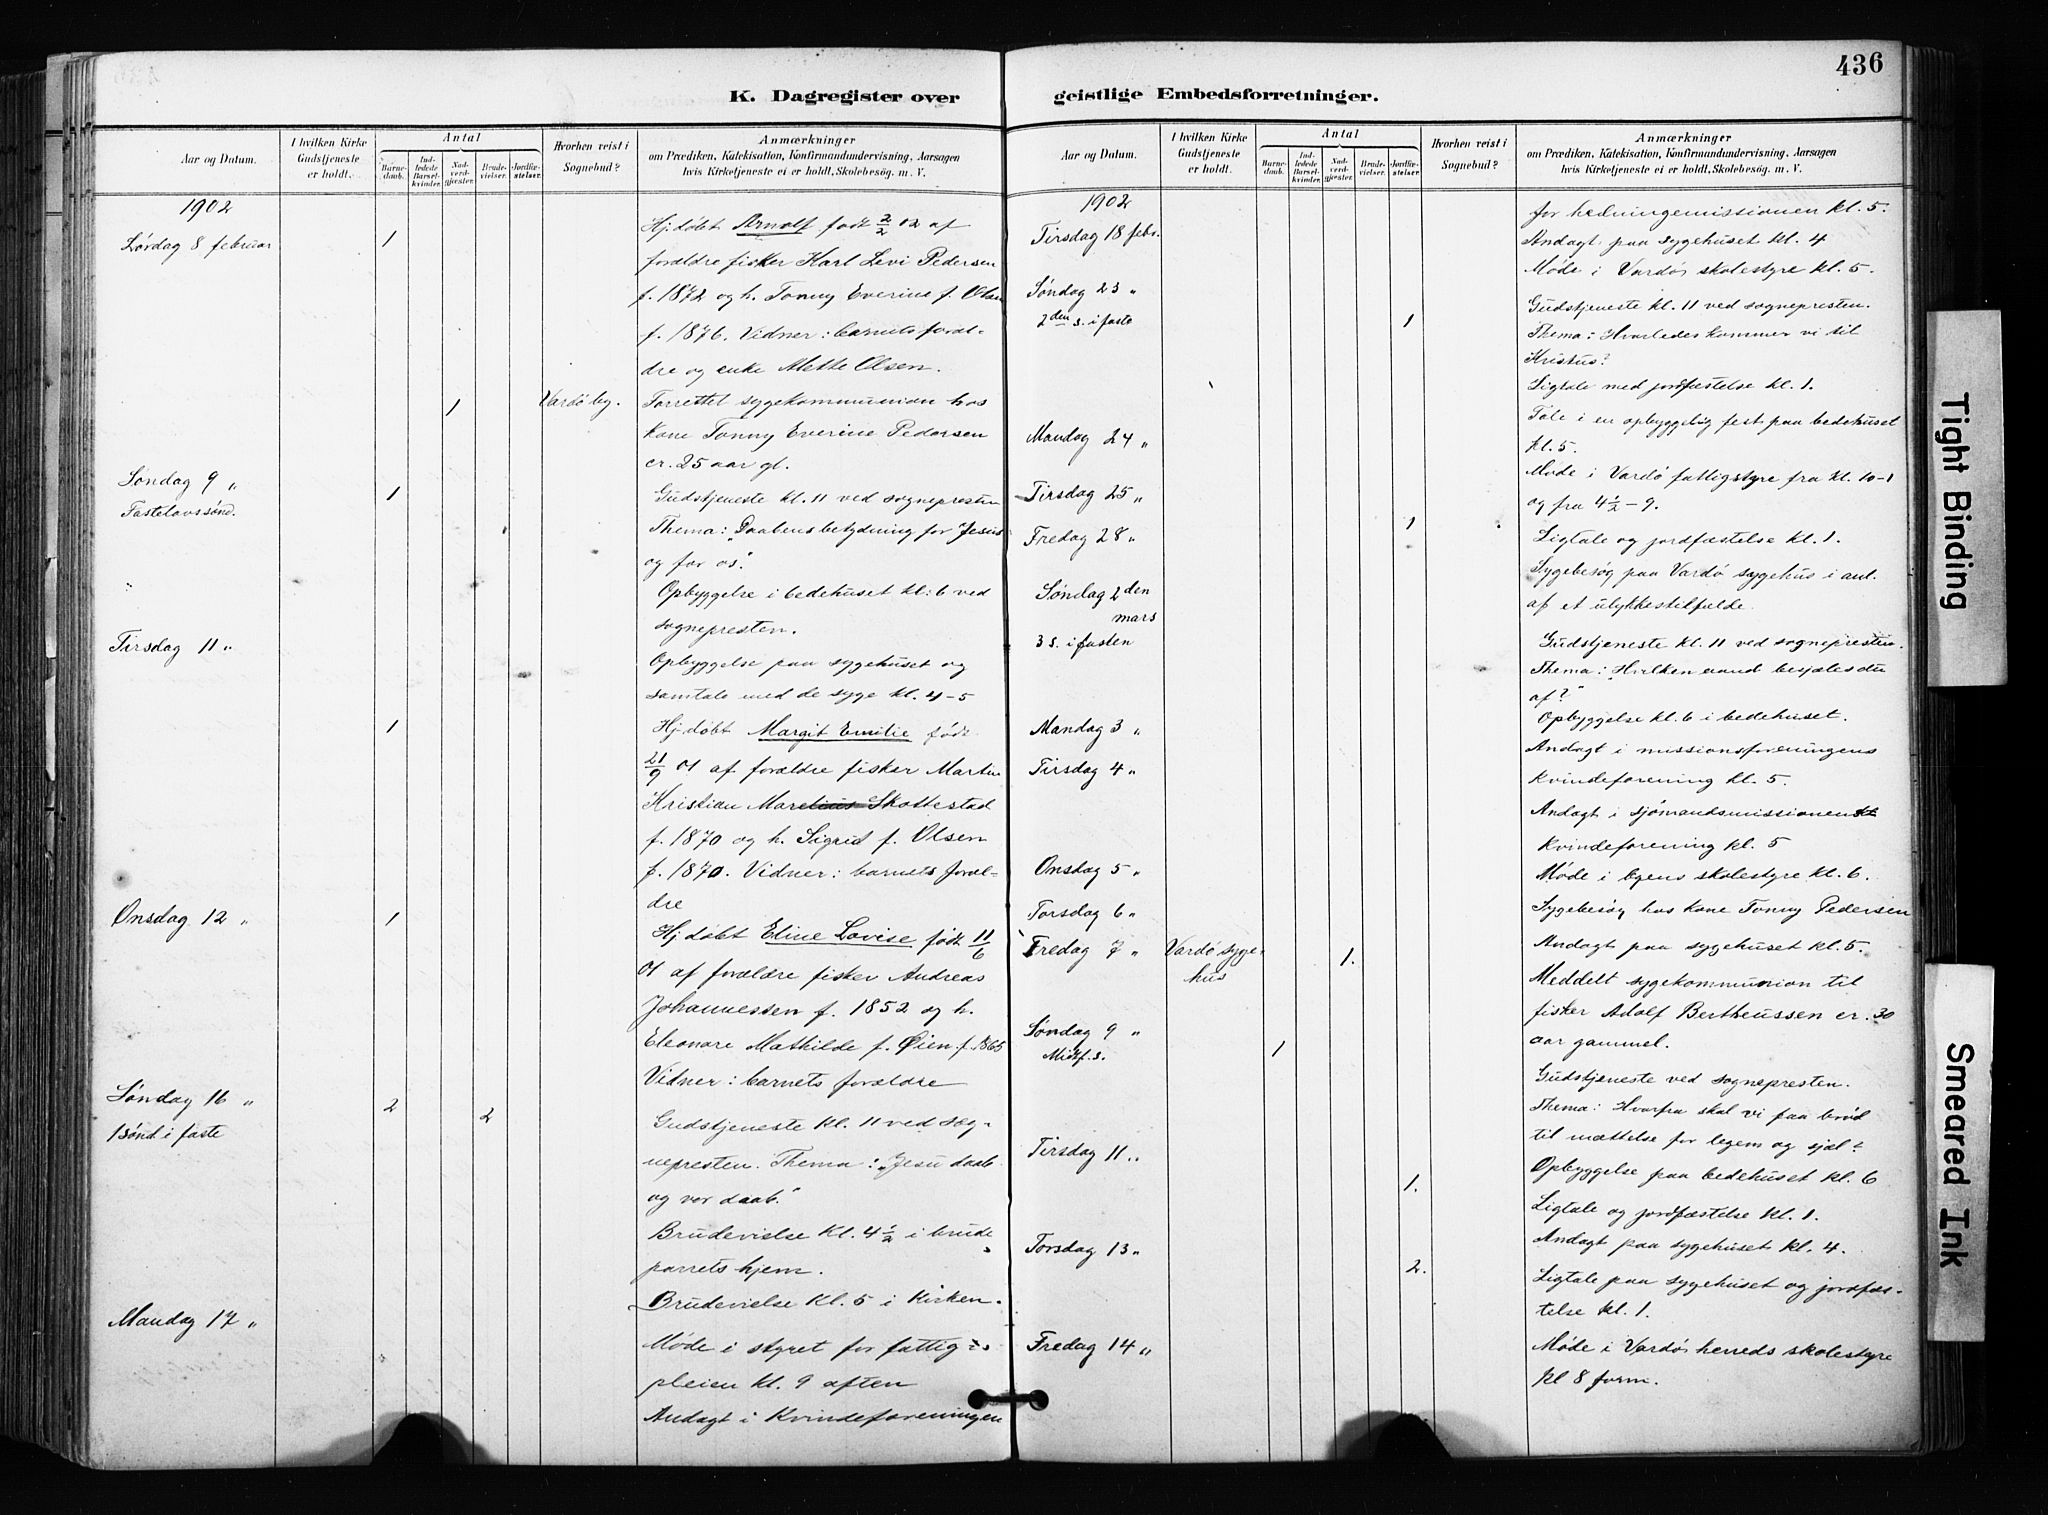 436
K. Dagregister over
Aar og Datum.
I hvilken Kirke Gudstjeneste er holdt.
Antal
Barnedaab.
Indledede Barselkvinder.
Nadverdgjester.
Brudevielser.
Jordfæstelser.
Hvorhen reist i Sognebud?
Anmærkninger
om Prædiken, Katekisation, Konfirmandundervisning, Aarsagen
hvis Kirketjeneste ei er holdt, Skolebesøg. m. V.
1902
Lørdag 8 februar
1
Hj. døbt Arnolf født 2/2 02 af
forældre fisker Karl Levi Pedersen
f. 1872 og h. Tonny Everine f. Olsen
f. 1876. Vidner: barnets foræl-
dre og enke Mette Olsen.
1
Vardö by.
Forrettet sygekommunion hos
kone Tonny Everine Pedersen
cr. 25 aar gl.
Søndag 9 "
Fastelavssønd.
1
Gudstjeneste kl. 11 ved sognepresten
Thema: "Daabens betydning for Jesus
og for os".
"
Opbyggelse i bedehuset kl: 6 ved
sognepresten.
Tirsdag 11 "
Opbyggelse paa sygehuset og
samtale med de syge kl. 4-5
1
Hj. døbt Margit Emilie født
21/9 01 af forældre fisker Martin
Kristian Skottestad
f. 1870 og h. Sigrid f. Olsen
f. 1870. Vidner: barnets foræl-
dre
Onsdag 12 "
1
Hj. døbt Eline Lovise født 11/6
01 af forældre fisker Andreas
Johannessen f. 1852 og h.
Eleonore Mathilde f. Øien f. 1865
Vidner: barnets forældre
Søndag 16 "
1 sønd i faste
2
2
Gudstjeneste kl. 11 ved sog-
nepresten. Thema: "Jesu daab
og vor daab."
Brudevielse kl. 4 1/2 i brude
parrets hjem.
Brudevielse kl. 5 i Kirken.
Mandag 17 "
Møde i styret for fattig
pleien kl. 9 aften
Andagt i Kvindeforeningen
geistlige Embedsforretninger.
Aar og Datum.
I hvilken Kirke Gudstjeneste er holdt.
Antal
Barnedaab.
Indledede Barselkvinder.
Nadverdgjester.
Brudevielser.
Jordfæstelser.
Hvorhen reist i Sognebud?
Anmærkninger
om Prædiken, Katekisation, Konfirmandundervisning, Aarsagen
hvis Kirketjeneste ei er holdt, Skolebesøg. m. V.
1902
for hedningemissionen kl. 5.
Tirsdag 18 febr.
Andagt paa sygehuset kl. 4
Møde i Vardö skolestyre kl. 5.
Søndag 23 "
2den s. i faste
1
Gudstjeneste kl. 11 ved sognepresten.
Thema: Hvorledes kommer vi til
Kristus?
Ligtale med jordfæstelse kl. 1.
Tale i en opbyggelig fest paa bedehuset
kl. 5.
Mandag 24 "
Møde i Vardö fattigstyre fra kl. 10-1
og fra 4 1/2 - 9.
Tirsdag 25 "
1
Ligtale og jordfæstelse kl. 1.
Fredag 28 "
Sygebesøg paa Vardö sygehus i anl.
af et ulykkestilfælde.
Søndag 2den
mars
3 s. i fasten
Gudstjeneste kl. 11 ved sognepresten.
Thema: "Hvilken aand besjæles du
af?"
Opbyggelse kl. 6 i bedehuset.
Mandag 3 "
Andagt i missionsforeningens
kvindeforening kl. 5.
Tirsdag 4 "
Andagt i sjømandsmissionens
kvindeforening kl. 5
Onsdag 5 "
Møde i byens skolestyre kl. 6.
Torsdag 6 "
Sygebesøg hos kone Tonny Pedersen
Fredag 7 "
Vardö syge-
hus
1.
Andagt paa sygehuset kl. 5.
Meddelt sygekommunion til
fisker Adolf Bertheussen cr. 30
aar gammel.
Søndag 9 "
Midf. s.
1
Gudstjeneste ved sognepresten.
Thema: Hvorfra skal vi faa brød
til mættelse for legem og sjæl?
Opbyggelse paa bedehuset kl. 6
Tirsdag 11 "
1.
Ligtale og jordfæstelse kl. 1.
Andagt paa sygehuset kl. 4.
Torsdag 13 "
2.
Ligtale paa sygehuset og jordfæs-
telse kl. 1.
Fredag 14 "
Møde i Vardö herreds skolestyre
kl 8 form.
Tight Binding
Smeared Ink